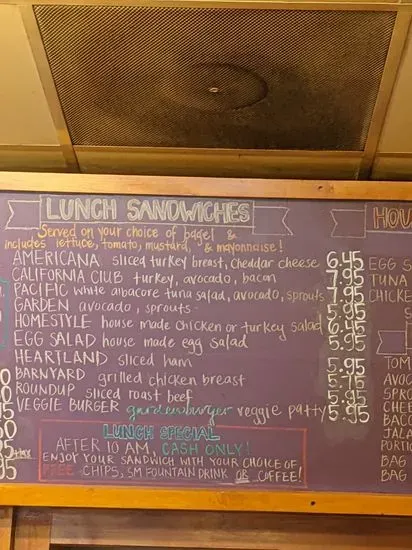 LUNCH SANDWICHES
Served on your choice of bagel &
includes lettuce, tomato, mustard, & mayonnaise!
AMERICANA sliced turkey breast, cheddar cheese 6.45
CALIFORNIA CLUB turkey, avocado, bacon 7.95
PACIFIC white albacore tuna salad, avocado, sprouts 7.95
GARDEN avocado, sprouts 5.95
HOMESTYLE house made chicken or turkey salad 6.45
EGG SALAD house made egg salad 5.95
HEARTLAND sliced ham 5.95
BARNYARD grilled chicken breast 5.75
ROUNDUP sliced roast beef 5.95
VEGGIE BURGER gardenburger veggie patty 5.95
LUNCH SPECIAL
AFTER 10 AM, CASH ONLY!
ENJOY YOUR SANDWICH WITH YOUR CHOICE OF
FREE CHIPS, SM FOUNTAIN DRINK OR COFFEE!
HOU
EGG S
TUNA
CHICKE
TOM
AVOC
SPRO
CHEE
BACO
JALA
PORTIO
BAG
BAG